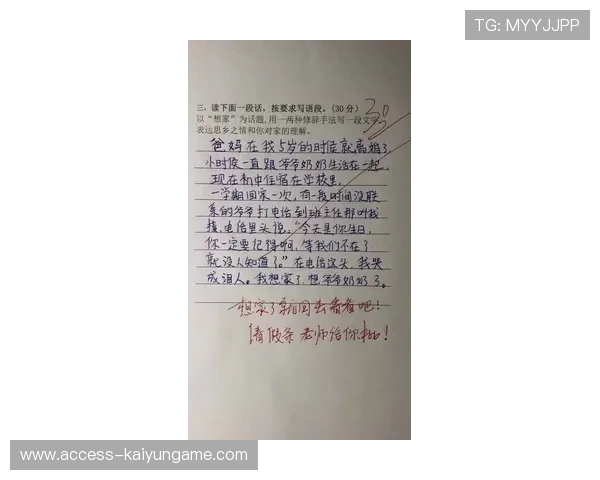 TG: MYYJJPP
三、读下面一段话，按要求写语段。(30分)
30
以“想家”为话题,用一两种修辞手法写一段文字
表达思乡之情和你对家的理解。
爸妈在我5岁的时候就离婚了,
小时候一直跟爷爷奶奶生活在一起,
现在初中住宿在学校里,
一学期回家一次,有一段时间没联
系的爷爷打电话到班主任那叫我
接,电话里头说:“今天是你生日,
你一定要记得啊,等我们不在了
就没人知道了。”在电话这头,我哭
成泪人。我想家了,想爷爷奶奶了。
想家了就回去看看吧!
请假条老师给你批!
www.access-kaiyungame.com